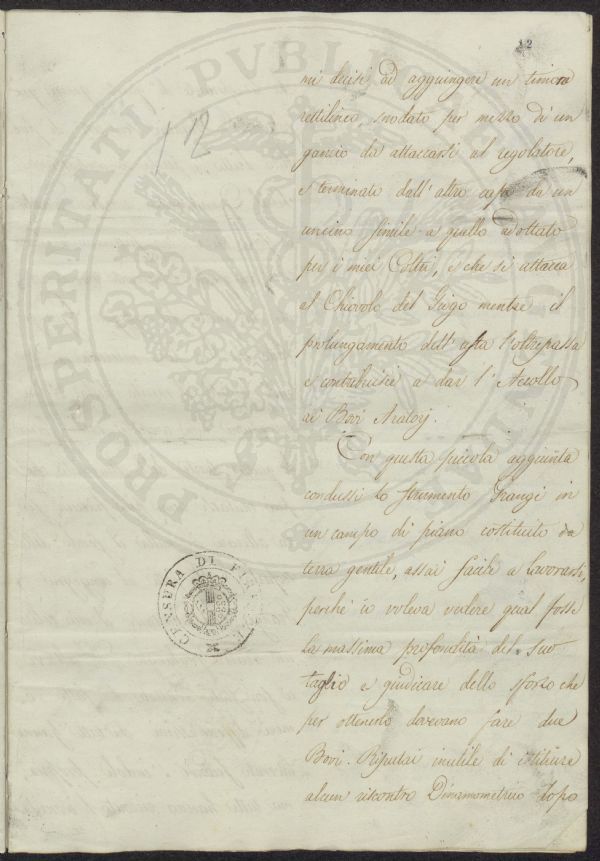 12
12
mi decisi ad aggiungere un timone
rettilineo, snodato per mezzo di un
gancio da attaccarsi al regolatore,
e terminato dall' altro capo da un
uncino simile a quello adottato
per i miei Coltri, e che si attacca
al Chiovolo del Giogo mentre il
prolungamento dell' asta l'oltrepassa
e contribuisce a dar l' Accollo
ai Bovi Aratorj.
Con questa piccola aggiunta
condussi lo strumento Frangi in
un campo di piano costituito da
terra gentile, assai facile a lavorarsi,
perchè io voleva vedere qual fosse
la massima profondità del suo
taglio e giudicare dello sforzo che
per ottenerlo dovevano fare due
Bovi. Riputai inutile di istituire
alcun riscontro Dinamometrico dopo
PROSPERITATI PVBLICAE
CENSURA DI FIRENZE